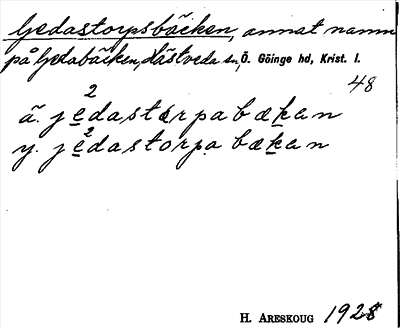 Gedastorpsbäcken, annat namn
på Gedabäcken, Hästveda sn, Ö. Göinge hd, Krist. l.
48
ä. jedastårpabækan
y. jedastorpa bækan
H. ARESKOUG 1928